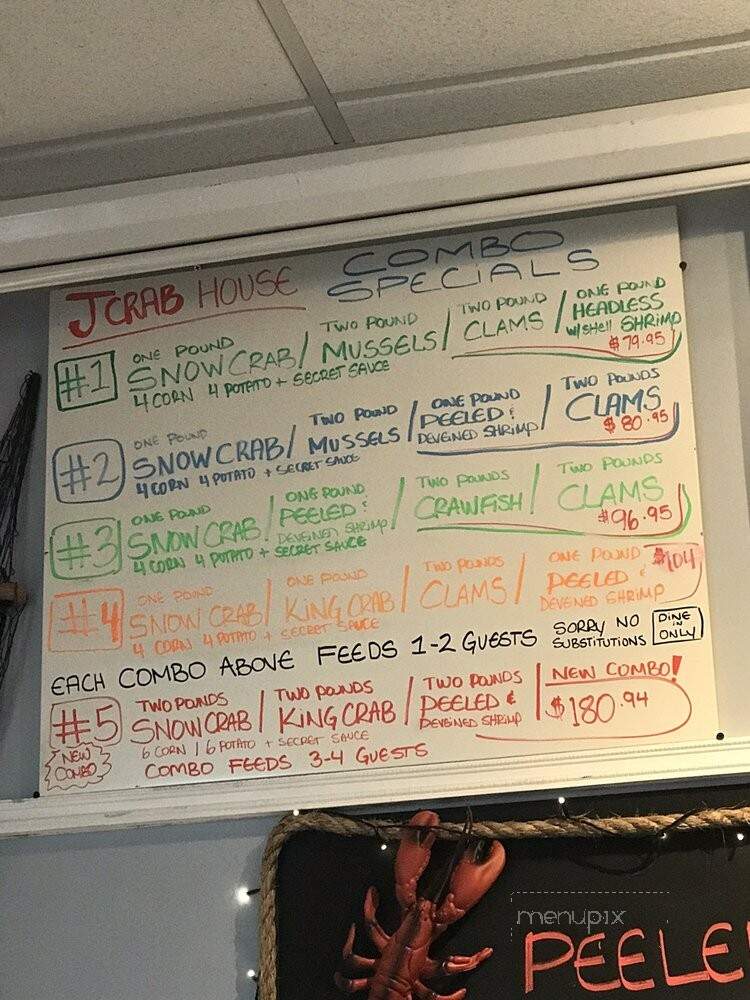 JCRAB HOUSE COMBO SPECIALS
#1 ONE POUND SNOWCRAB / TWO POUND MUSSELS / TWO POUND CLAMS / ONE POUND HEADLESS W/SHELL SHRIMP $79.95
4 CORN 4 POTATO + SECRET SAUCE
#2 ONE POUND SNOWCRAB / TWO POUND MUSSELS / ONE POUND PEELED & DEVEINED SHRIMP / TWO POUNDS CLAMS $80.95
4 CORN 4 POTATO + SECRET SAUCE
#3 ONE POUND SNOWCRAB / ONE POUND PEELED & DEVEINED SHRIMP / TWO POUNDS CRAWFISH / TWO POUNDS CLAMS $96.95
4 CORN 4 POTATO + SECRET SAUCE
#4 ONE POUND SNOW CRAB / ONE POUND KING CRAB / TWO POUNDS CLAMS / ONE POUND PEELED & DEVEINED SHRIMP $104
4 CORN 4 POTATO + SECRET SAUCE
EACH COMBO ABOVE FEEDS 1-2 GUESTS SORRY NO SUBSTITUTIONS DINE IN ONLY
#5 TWO POUNDS SNOWCRAB / TWO POUNDS KING CRAB / TWO POUNDS PEELED & DEVEINED SHRIMP / NEW COMBO! $180.94
6 CORN / 6 POTATO + SECRET SAUCE
NEW COMBO
COMBO FEEDS 3-4 GUESTS
menupix
PEELE